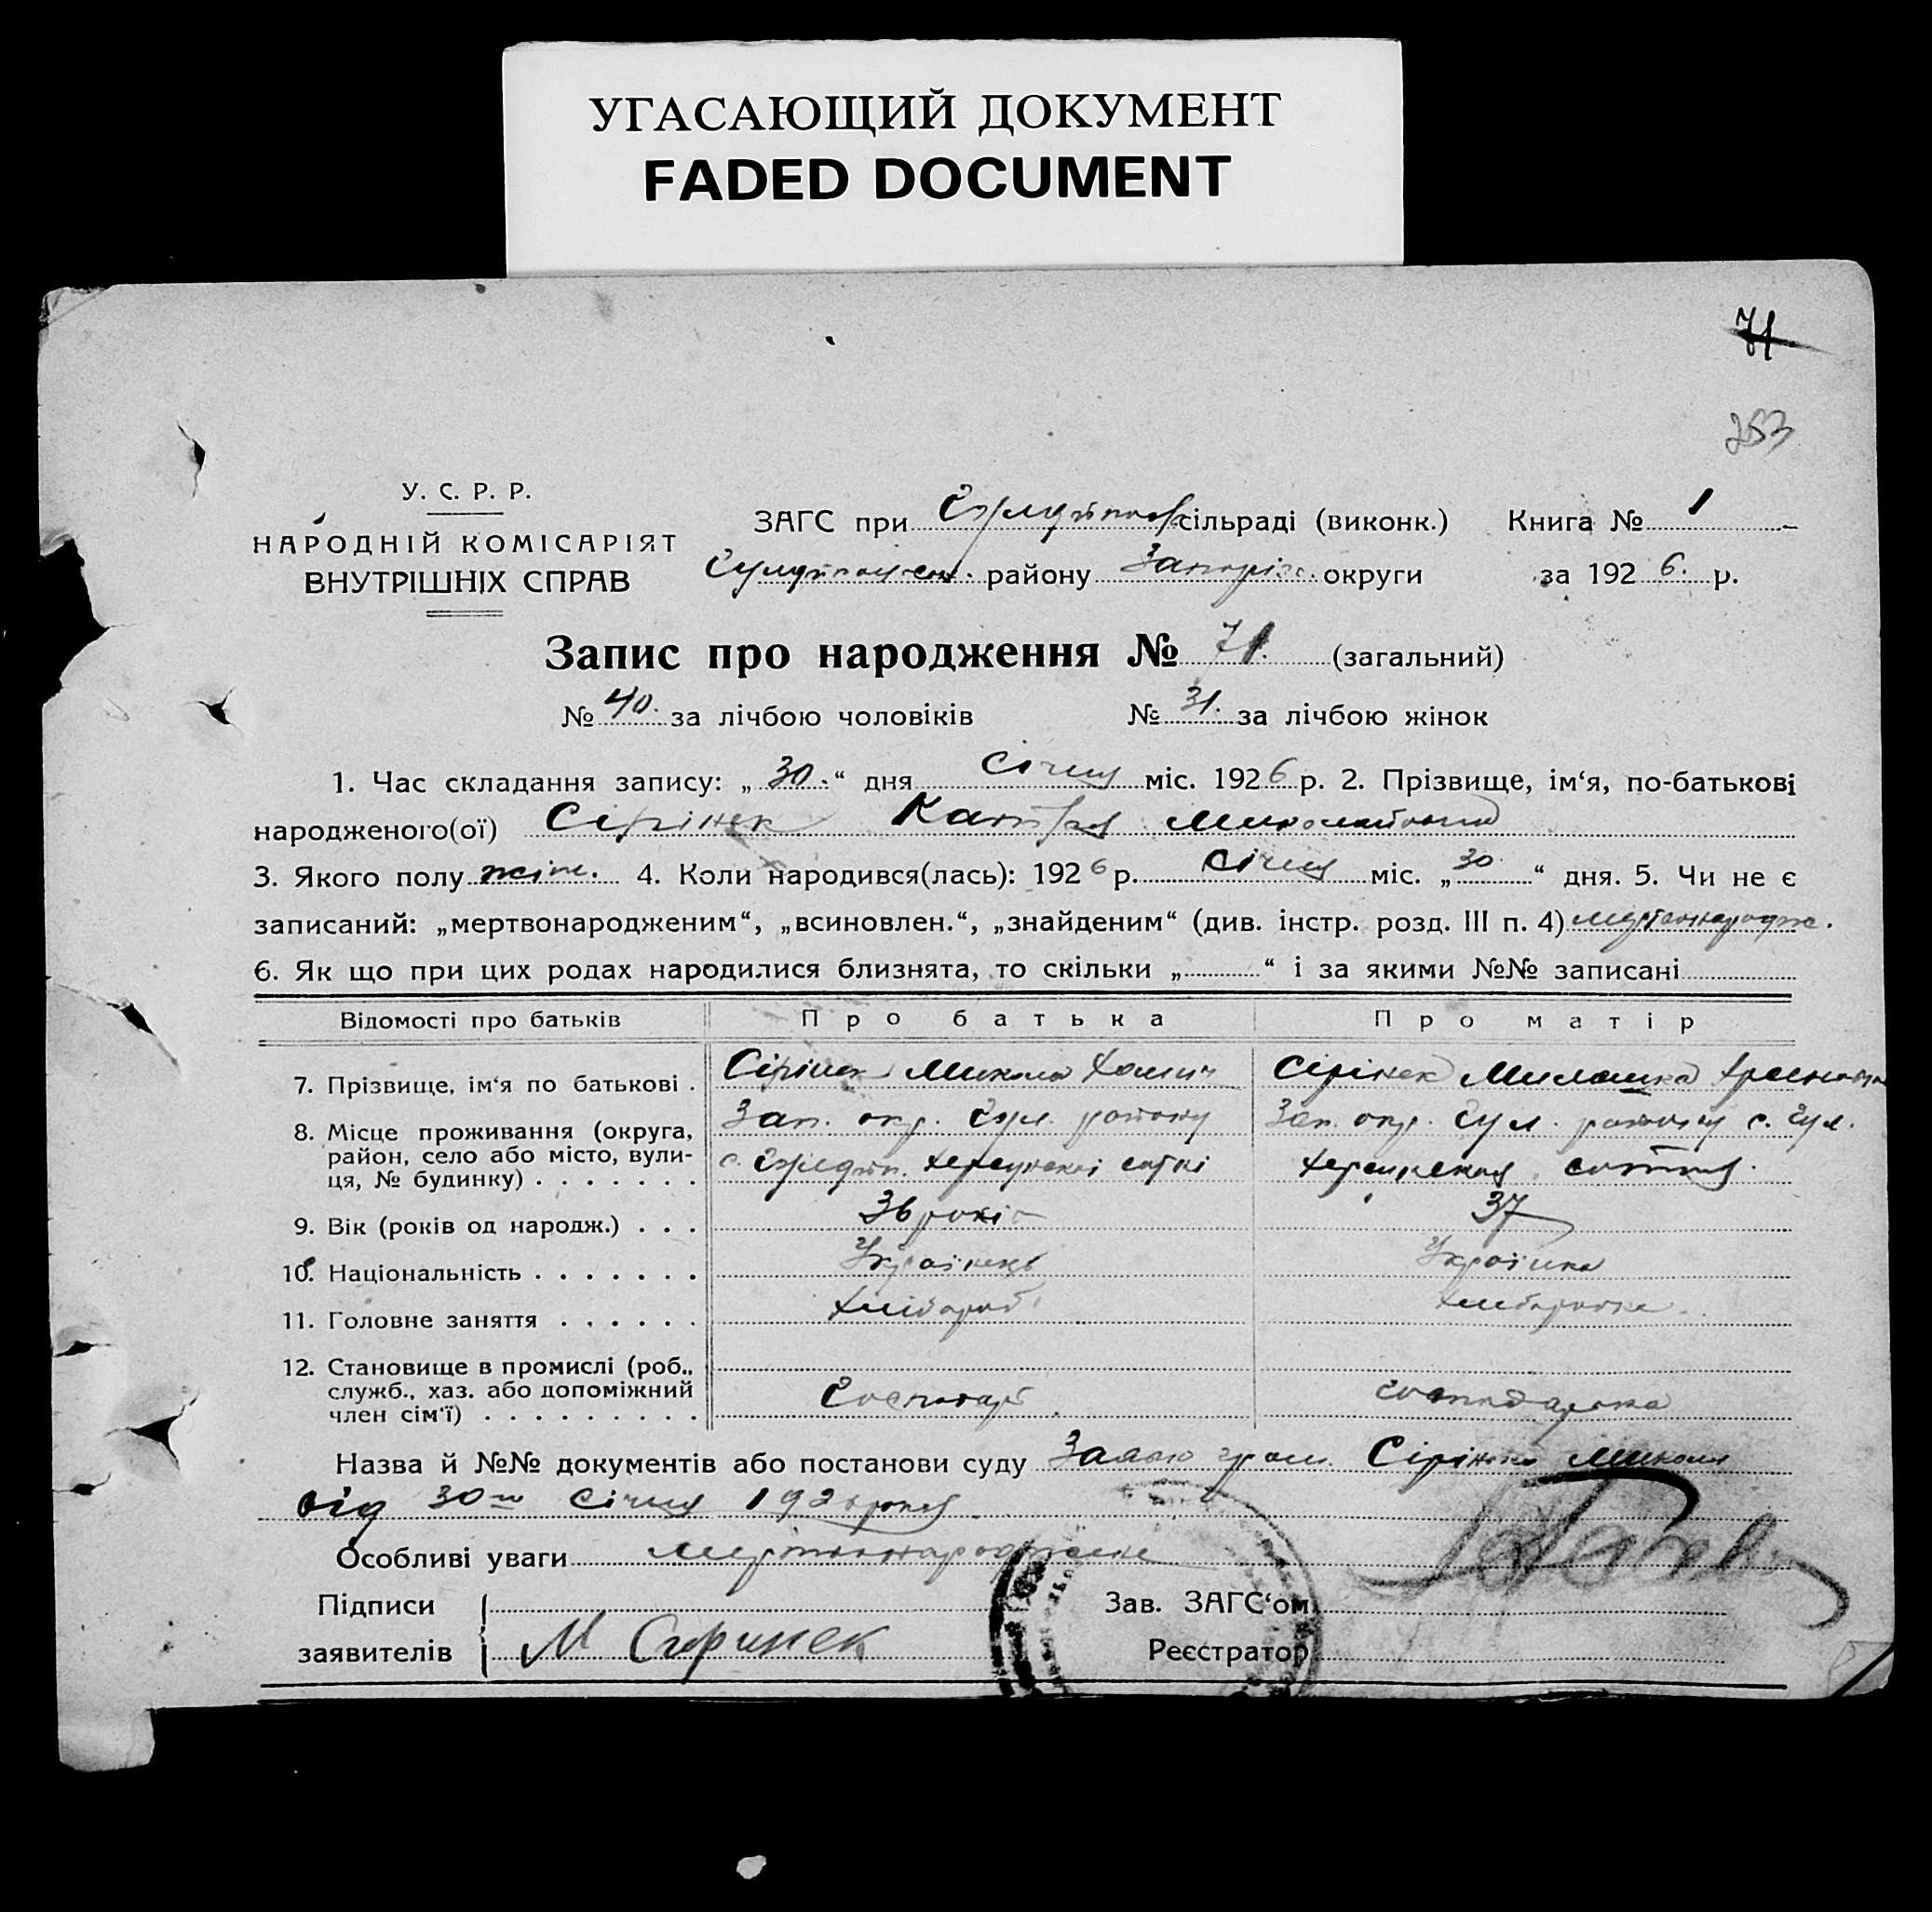 УГАСАЮЩИЙ ДОКУМЕНТ
FADED DOCUMENT
71
253
У. С. Р. Р.
НАРОДНІЙ КОМІСАРІЯТ
ВНУТРІШНІХ СПРАВ
ЗАГС при сільраді (виконк.) Книга № 1
району Запоріз. округи за 1926. р.
Запис про народження № 71. (загальний)
№ 40. за лічбою чоловіків № 31. за лічбою жінок
1. Час складання запису: „30.“ дня Січня міс. 1926 р. 2. Прізвище, ім‘я, по-батькові
народженого(ої) Сірінек Миколаївна
3. Якого полу жін. 4. Коли народився(лась): 1926 р. Січня міс. „30“ дня. 5. Чи не є
записаний: „мертвонародженим“, „всиновлен.“, „знайденим“ (див. інстр. розд. III п. 4) мертвонародж.
6. Як що при цих родах народилися близнята, то скільки „ “ і за якими №№ записані
Відомості про батьків Про батька Про матір
7. Прізвище, ім‘я по батькові . Сірінек Микола Хомич Сірінек
8. Місце проживання (округа, Зап. окр. Гул. району Зап. окр. Гул. району с. Гул.
район, село або місто, вули-
ця, № будинку) . . . . . . . сотні сотня.
9. Вік (років од народж.) . . . 36 років 37
10. Національність . . . . . . . Українець Українка
11. Головне заняття . . . . . . Хлібороб Хліборобка
12. Становище в промислі (роб.,
служб., хаз. або допоміжний
член сім‘ї) . . . . . . . . . Господар Господарка
Назва й №№ документів або постанови суду Заява гром. Сірінека Миколи
від 30го Січня 1926 року
Особливі уваги мертвонароджене
Підписи Зав. ЗАГС‘ом
заявителів М Сиринек Реєстратор